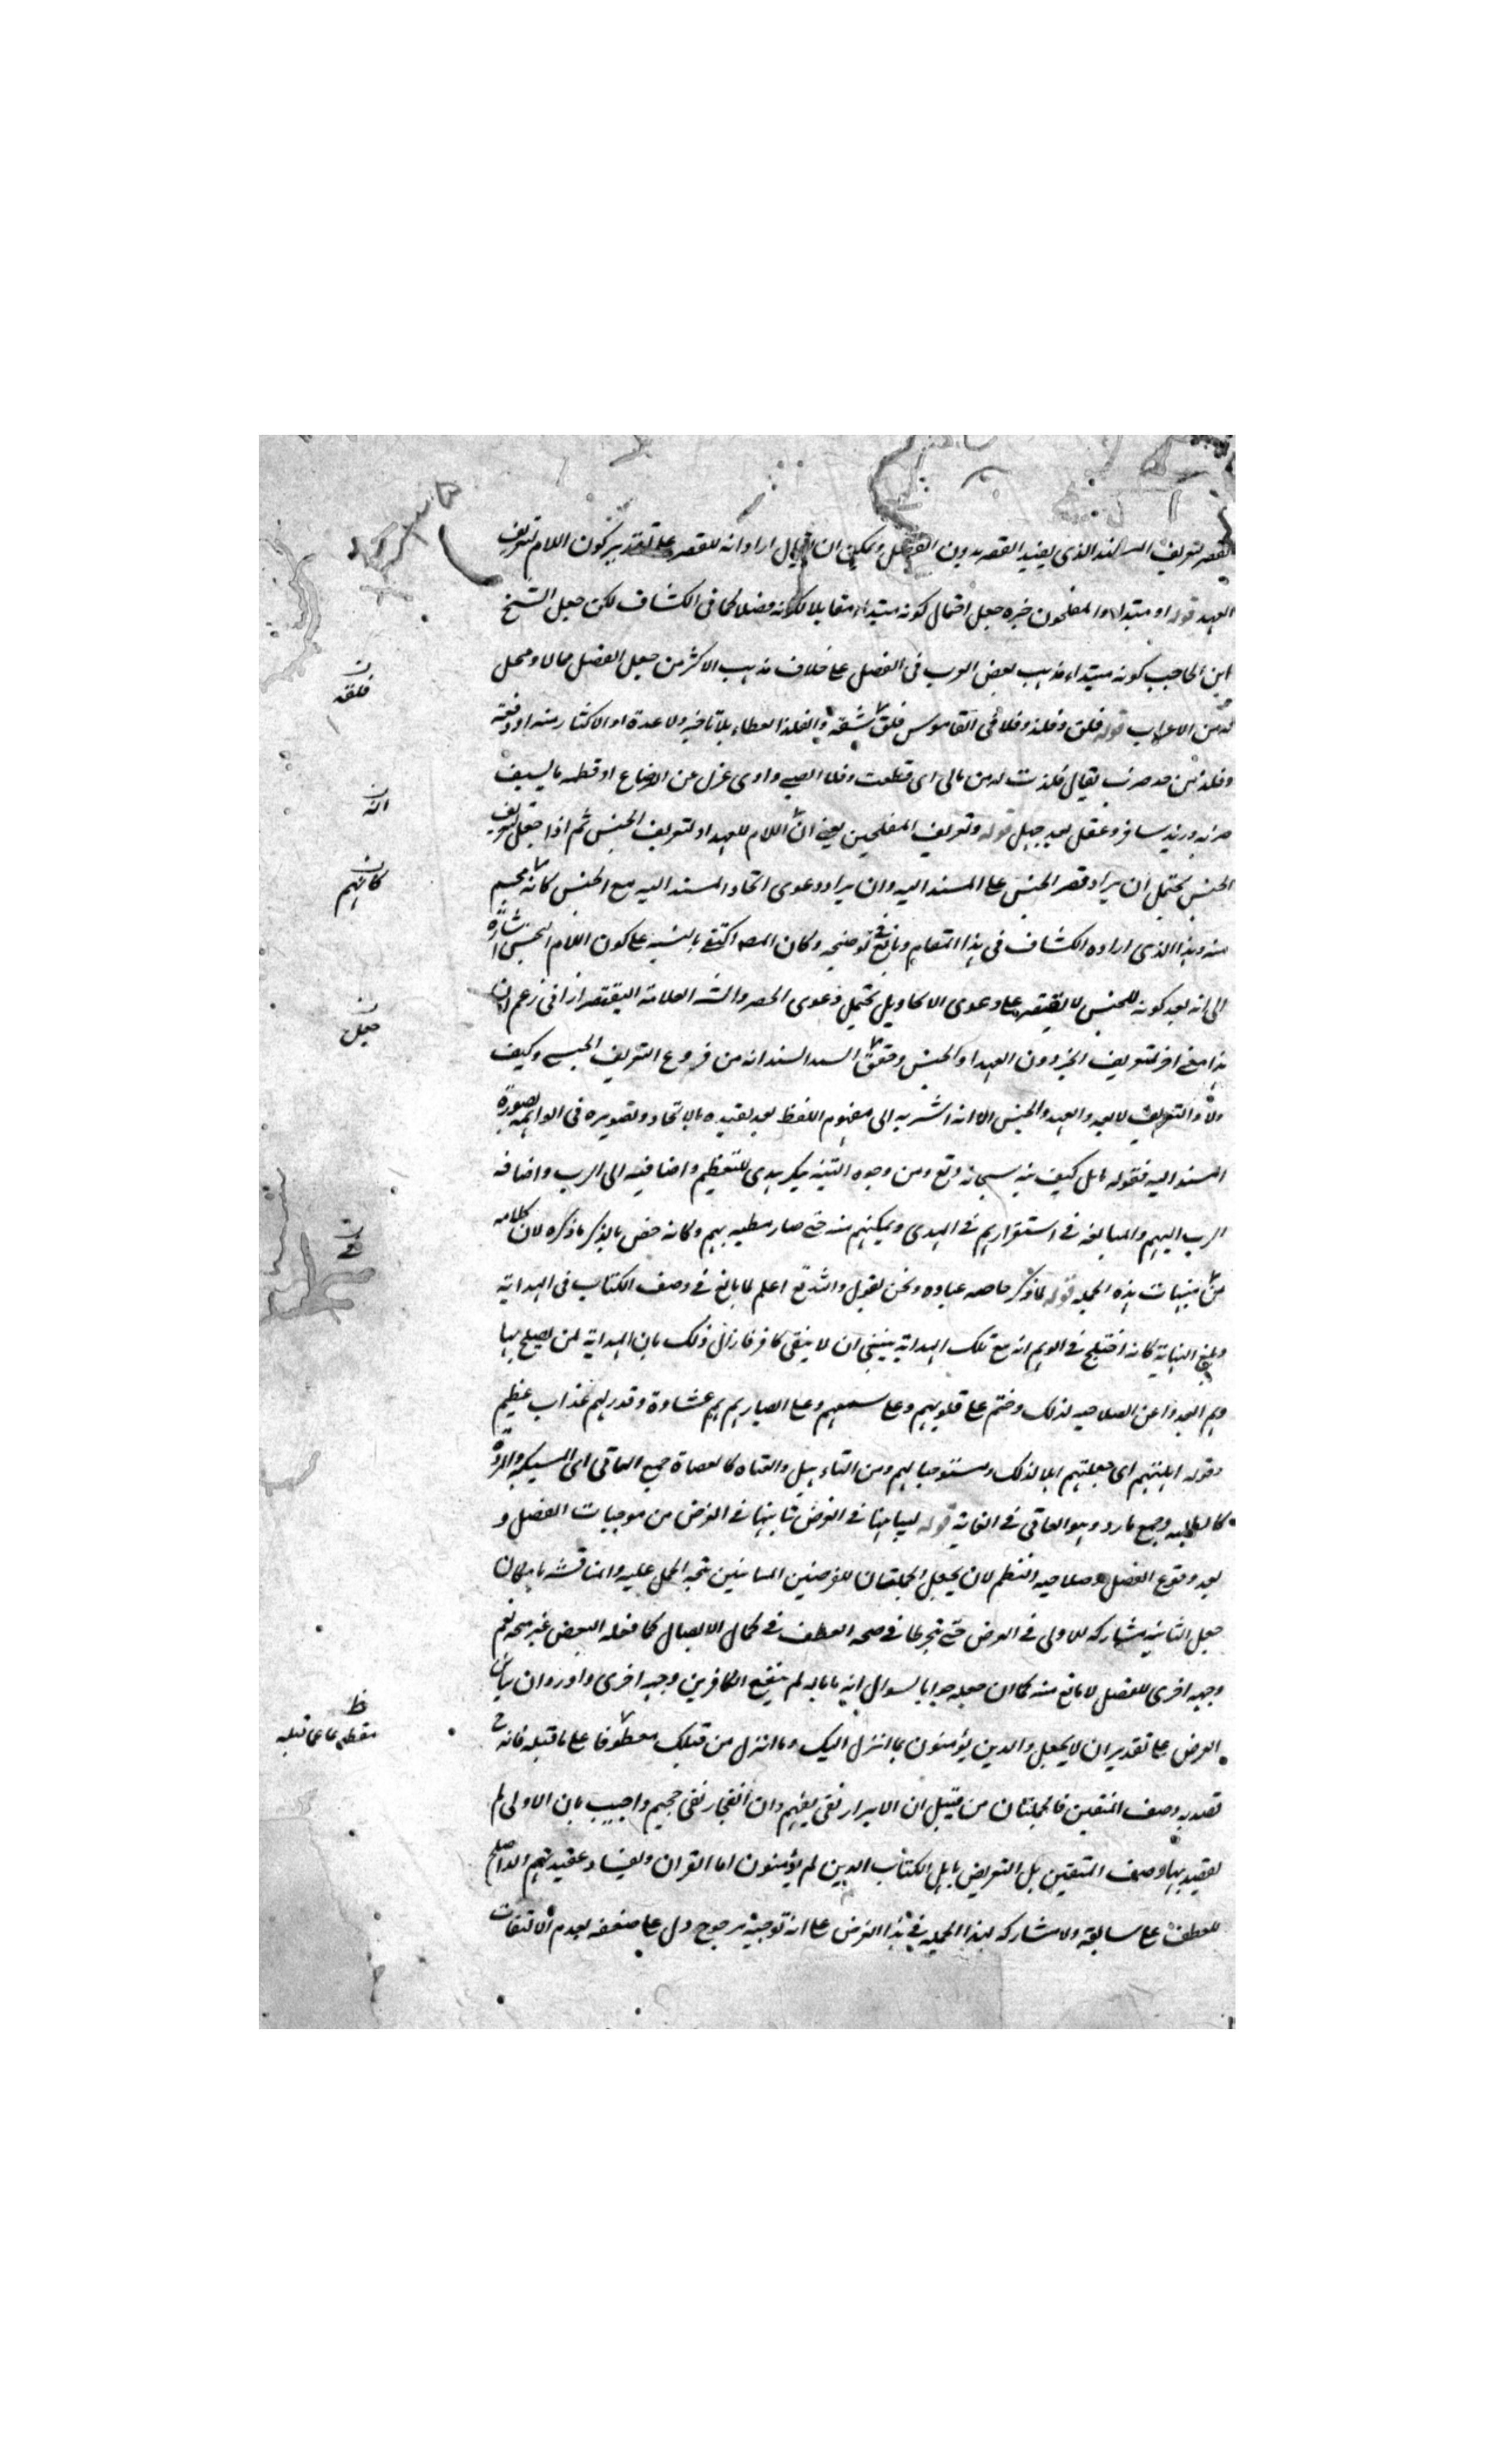 القصر لتعريف المسند الذي يفيد القصر بدون الفصل ويمكن ان يقال اراد انه للقصر على تقدير كون اللام لتعريف
العهد قوله او مبتداء والمفلحون خبره جعل احتمال كونه مبتداء مقابلا لكونه فصلا كما في الكشاف لكن جعل الشيخ
ابن الحاجب كونه مبتداء مذهب بعض العرب في الفصل على خلاف مذهب الاكثر من جعل الفصل مما لا محل
له من الاعراب قوله فلق وفلذ وفلا في القاموس فلق شقه والفلذ العطاء بلا تاخير ولا عدة او الاكثار منه او دفعة
وفلذ من حد ضرب يقال فلذت له من مالي اى قطعت وفلا الصبي واوى عزل عن الرضاع او قطعه بالسيف
ضربه وزيد سافر وعقل بعد جهل قوله وتعريف المفلحين يعنى ان اللام للعهد او لتعريف الجنس ثم اذا جعل لتعريف
الجنس يحتمل ان يراد قصر الجنس على المسند اليه وان يراد دعوى اتحاد المسند اليه مع الجنس كانه مجسم
منه وهذا الذى اراده الكشاف في هذا المقام وبالغ في توضيحه وكان المصـ اكتفى بالتنبيه على كون اللام للجنس اشارة
الى انه بعد كونه للجنس لا يقتصر على دعوى الاتحاد بل يحتمل دعوى الحصر والشـ العلامة التفتازاني زعم ان
هذا معنى اخر لتعريف الخبر دون العهد او الجنس وحقق السيد السند انه من فروع التعريف الجنسى وكيف
لا والتعريف لا يعدو العهد والجنس الا انه اشير به الى مفهوم اللفظ بعد تقييده بالاتحاد وتصويره في الواهمة بصورة
المسند اليه فقوله تامل كيف نبه سبحانه وتع ومن وجوه التنبيه تنكير هدى للتعظيم واضافته الى الرب واضافة
الرب اليهم والمبالغة في استقرارهم في الهدى وتمكنهم منه حتى صار مطية لهم وكانه خص بالذكر ما ذكره لان كلامه
في تنبيهات هذه الجملة قوله لما ذكر خاصة عباده ونحن نقول والله تع اعلم لما بالغ في وصف الكتاب في الهداية
وبلغ النهاية كانه اختلج في الوهم انه مع تلك الهداية ينبغي ان لا يبقى كافر فازال ذلك بان الهداية لمن يصلح لها
وهم ابعدوا عن الصلاحيه لذلك وختم على قلوبهم وعلى سمعهم وعلى ابصارهم غشاوة وقدر لهم عذاب عظيم
وقوله اهلتهم اى جعلتهم اهلا لذلك ومستوجبا لهم ومن التاءهيل والعتاة كالعصاة جمع العاتى اى المستكبر والمردة
كالطلبة وجمع مارد وهو العاتى في الغاية قوله لتباينهما في الغرض تباينهما في الغرض من موجبات الفصل و
بعد وقوع الفصل وصلاحية النظم لان يجعل الجملتان للغرضين المتباينين يتجه الحمل عليه والمناقشة بامكان
جعل الثانية مشاركة للاولى في الغرض حتى ينجرطا في صحة العطف في كمال الاتصال كما فعله البعض غير متجه نعم
وجه اخرى للفصل لا مانع منه كما ان جعله جوابا لسوال انه ما باله لم ينفع الكافرين وجه اخرى واورد ان تباين
الغرض على تقدير ان لا يجعل والذين يؤمنون بما انزل اليك وما انزل من قبلك معطوفا على ما قبله فانه ح
تقييد به وصف المتقين فالجملتان من قبيل ان الابرار لفى نعيم وان الفجار لفى جحيم واجيب بان الاولى لم
يقصد بها وصف المتقين بل التعريض باهل الكتاب الذين لم يؤمنون اما القران وبفساد عقيدتهم
للعطف على سابقة ولا مشاركة لهذا الجملة في هذا الغرض على انه توجيه مرجوح دل على ضعفه بعدم الالتفات
فلقه
انه
كانهم
جعل
في
ظ
مقطوعا عما قبله